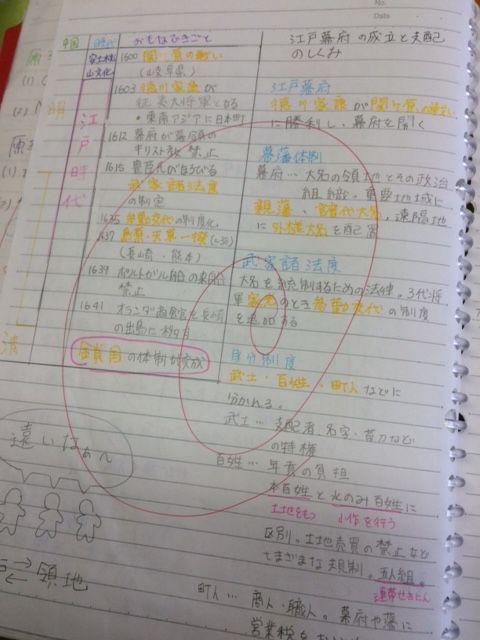 No.
Date
中国
時代
おもなできごと
安土桃
山文化
明
江戸時代
1600 関ヶ原の戦い
(岐阜県)
1603 徳川家康が
征夷大将軍となる
・東南アジアに日本町
1612 幕府が幕令の
キリスト教禁止
1615 豊臣氏がほろびる
武家諸法度
の制定
1635 参勤交代の制度化
1637 島原・天草一揆(~38)
(長崎・熊本)
1639 ポルトガル船の来航
禁止
1641 オランダ商館を長崎
の出島に移す
鎖国の体制が完成
江戸幕府の成立と支配
のしくみ
江戸幕府
徳川家康が関ヶ原の戦い
に勝利し、幕府を開く
幕藩体制
幕府…大名の領地とその政治
組織。重要地域に
親藩、譜代大名、遠隔地
に外様大名を配置
武家諸法度
大名を統制するための法律。3代将
軍家光のとき参勤交代の制度
を追加する
身分制度
武士・百姓・町人などに
分かれる。
武士…支配者 名字・帯刀など
の特権
百姓…年貢の負担
本百姓と水のみ百姓に
土地をもつ 小作を行う
区別。土地売買の禁止など
さまざまな規制。五人組。
連帯せきにん
町人…商人・職人。幕府や藩に
営業税を
遠いなぁん
領地